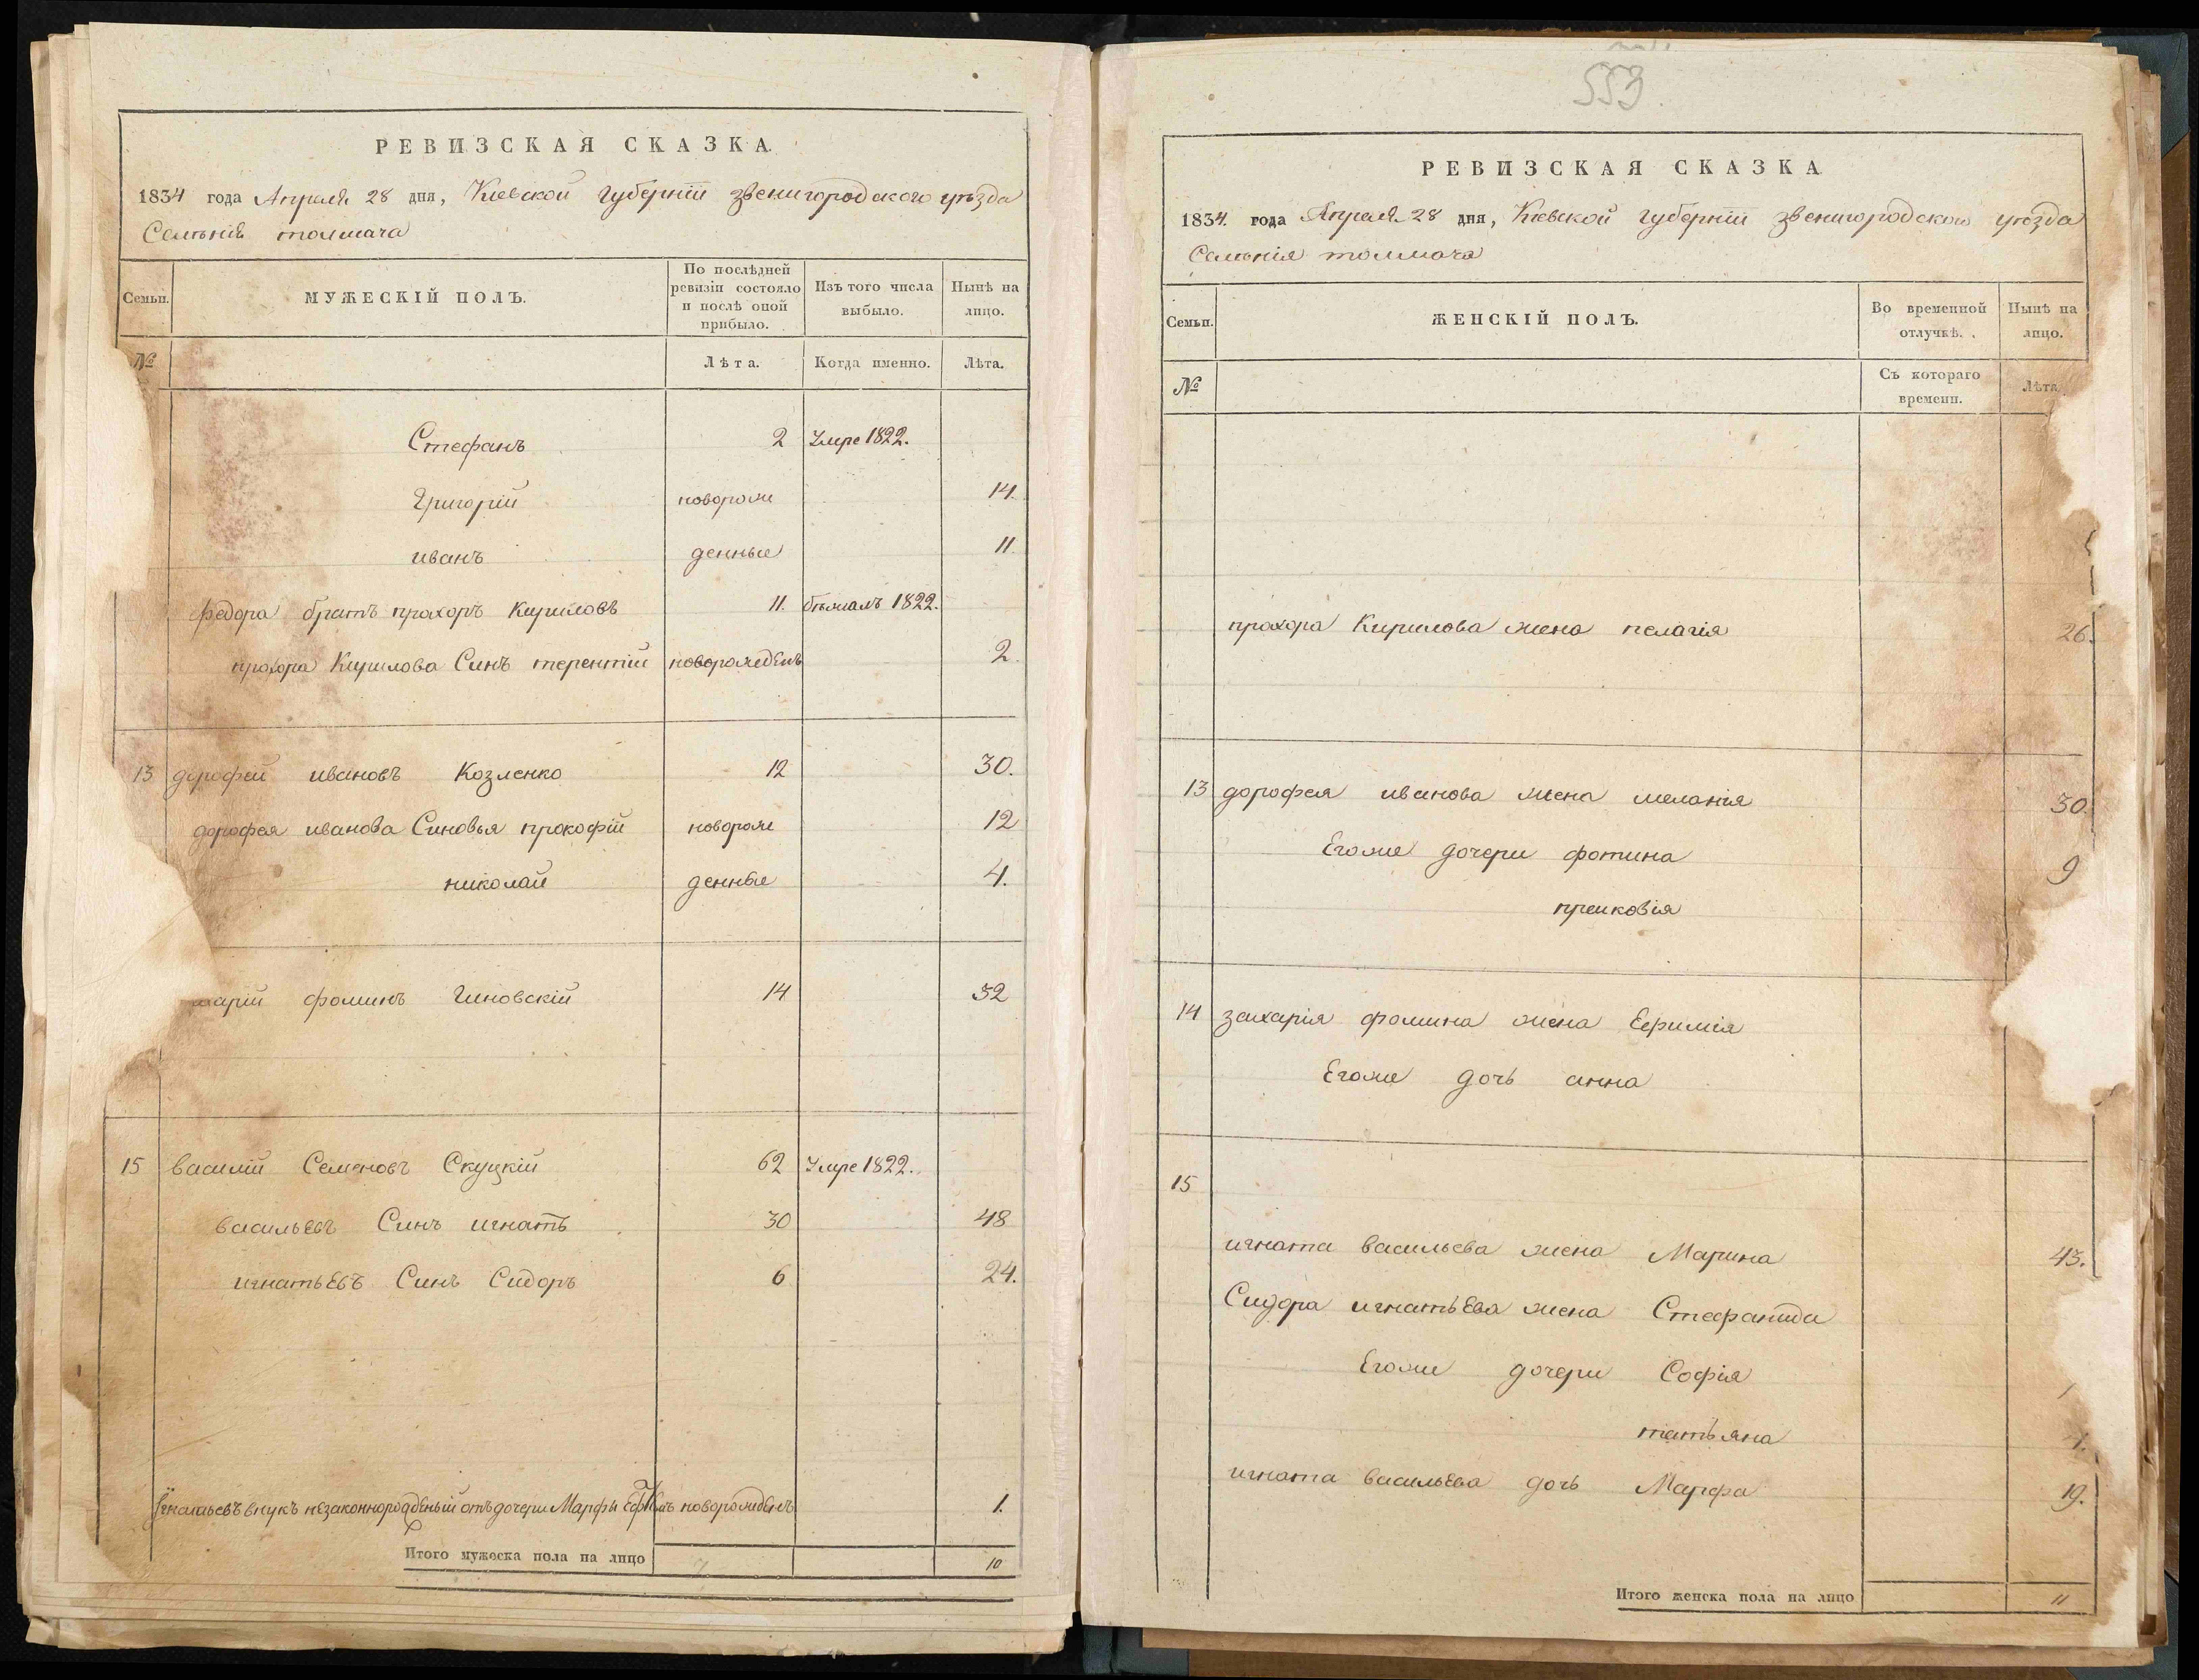 РЕВИЗСКАЯ СКАЗКА
1834 года Апреля 28 дня, Киевской губернїи звенигородского уезда
Селенїя толмача
Семьи.
МУЖЕСКІЙ ПОЛЪ.
По послѣдней ревизіи состояло и послѣ оной прибыло.
Изъ того числа выбыло.
Нынѣ на лицо.
№
Лѣта.
Когда именно.
Лѣта.
Стефанъ 2 Умре 1822.
Григорїй новорож 14.
иванъ денные 11.
федора братъ прохоръ Кириловъ 11. бежалъ 1822.
прохора Кирилова Синъ терентїй новорожденъ 2.
13 дорофей ивановъ Козленко 12 30.
дорофея иванова Синовья прокофїй новорож 12
николай денные 4.
харїй фоминъ 14 32
15 василїй Семеновъ Скуцкїй 62 Умре 1822.
васильевъ Синъ игнатъ 30 48
игнатьевъ Синъ Сидоръ 6 24.
Игнатьевъ внукъ незаконнорожденый отъ дочери Марфы новорожденъ 1.
Итого мужеска пола на лицо 10
553
РЕВИЗСКАЯ СКАЗКА
1834. года Апреля 28 дня, Киевской губернїи звенигородского уезда
Селенїя толмача
Семьи.
ЖЕНСКІЙ ПОЛЪ.
Во временной отлучкѣ.
Нынѣ на лицо.
№
Съ котораго времени.
Лѣта
прохора Кирилова жена пелагїя 26.
13 дорофея иванова жена меланїя 30.
Егоже дочери фотина 9
прасковїя
14 захарїя фомина жена Ефимїя
Егоже дочь анна
15
игната васильева жена Марина 43.
Сидора игнатьева жена Стефанида
Егоже дочери Софїя
татьяна
игната васильева дочь Марфа 19.
Итого женска пола на лицо 11